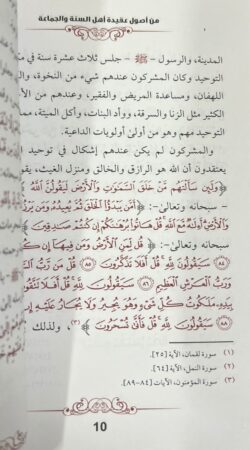 من أصول عقيدة أهل السنة والجماعة
المدينة، والرسول - ﷺ - جلس ثلاث عشرة سنة في
التوحيد وكان المشركون عندهم شيء من النخوة، و
اللهفان، ومساعدة المريض والفقير، وعندهم من الأ
الكثير مثل الزنا والسرقة، ووأد البنات، وأكل الميتة،
التوحيد مهم وهو من أولى أولويات الداعية.
والمشركون لم يكن عندهم إشكال في توحيد ا
يعتقدون أن الله هو الرازق والخالق ومنزل الغيث، يقو
﴿وَلَئِن سَأَلْتَهُم مَّنْ خَلَقَ السَّمَوَاتِ وَالْأَرْضَ لَيَقُولُنَّ اللَّهُ
سبحانه وتعالى-: ﴿أَمَّن يَبْدَؤُا الْخَلْقَ ثُمَّ يُعِيدُهُ وَمَن يَرْزُ
وَالْأَرْضِ أَءِلَهٌ مَّعَ اللَّهِ قُلْ هَاتُوا بُرْهَانَكُمْ إِن كُنتُمْ صَادِقِينَ
سبحانه وتعالى-: ﴿قُل لِّمَنِ الْأَرْضُ وَمَن فِيهَا إِن كُ
سَيَقُولُونَ لِلَّهِ قُلْ أَفَلَا تَذَكَّرُونَ ٨٥ قُلْ مَن رَّبُّ ال
وَرَبُّ الْعَرْشِ الْعَظِيمِ ٨٦ سَيَقُولُونَ لِلَّهِ قُلْ أَفَلَا تَتَّقُ
بِيَدِهِ مَلَكُوتُ كُلِّ شَيْءٍ وَهُوَ يُجِيرُ وَلَا يُجَارُ عَلَيْهِ إِن
٨٨ سَيَقُولُونَ لِلَّهِ قُلْ فَأَنَّى تُسْحَرُونَ﴾ (٣)، ولذلك
(١) سورة لقمان، الآية [٢٥].
(٢) سورة النمل، الآية [٦٤].
(٣) سورة المؤمنون، الآيات [٨٤-٨٩].
10